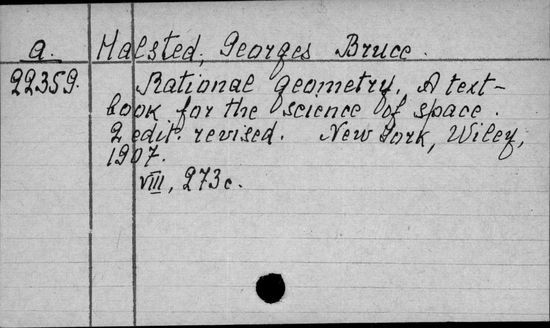 a. Halsted, Georges Bruce.
22359. Rational geometry. A text-
book for the science of space.
2 edit. revised. New York, Wiley,
1907.
VIII, 273 c.